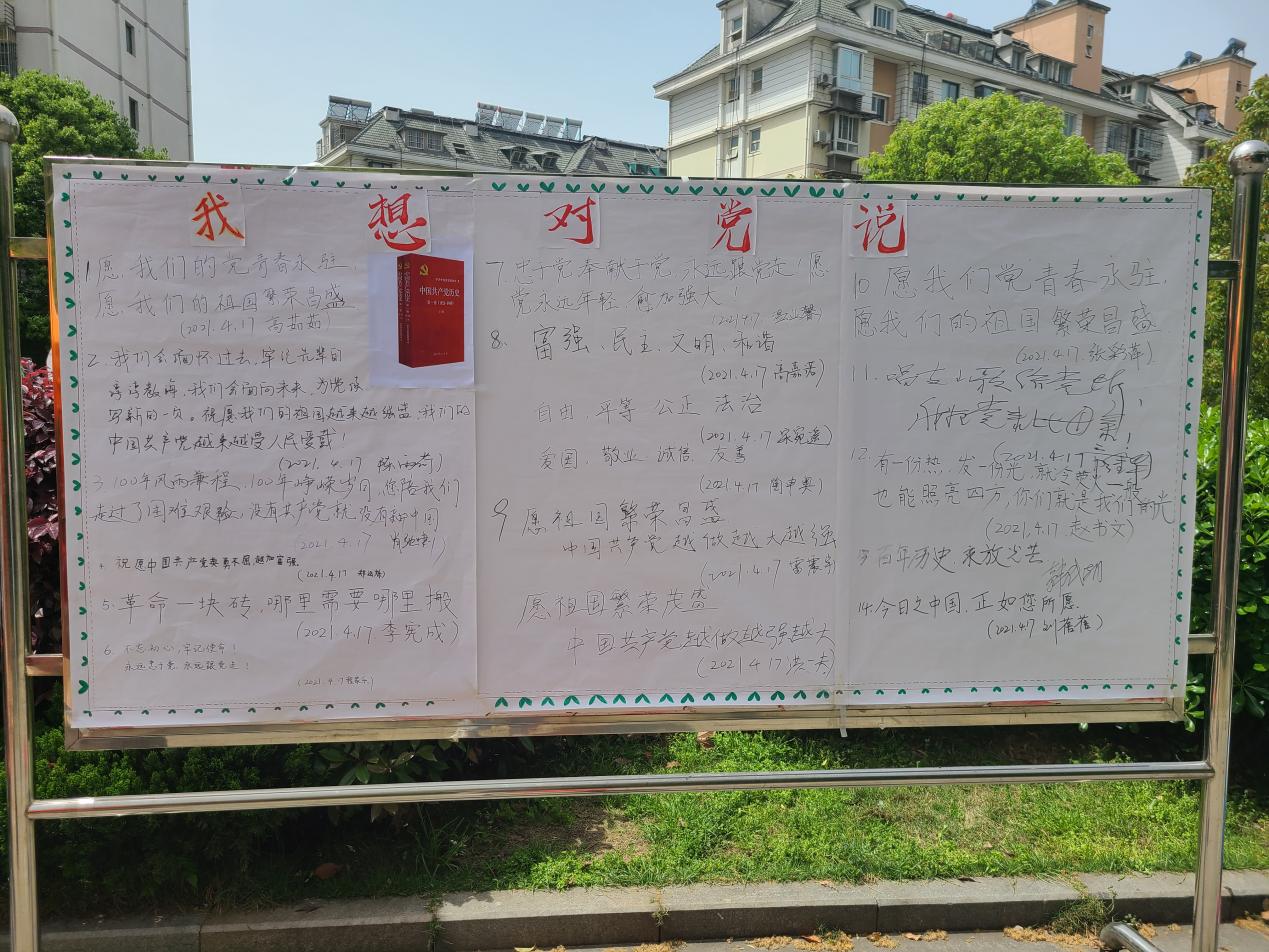 我想对党说
1.愿我们的党青春永驻,
愿我们的祖国繁荣昌盛
(2021.4.17 高茹茹)
中国共产党历史
2.我们会缅怀过去,牢记先辈的
谆谆教诲,我们会面向未来,为党谱
写新的一页。祝愿我们的祖国越来越强盛,我们的
中国共产党越来越受人民爱戴!
(2021.4.17
3.100年风雨兼程,100年峥嵘岁月,您陪我们
走过了困难艰险,没有共产党就没有新中国
2021.4.17
4. 祝愿中国共产党英勇不屈,越加富强
(2021.4.17
5.革命一块砖,哪里需要哪里搬
(2021.4.17 李宪成)
6. 不忘初心,牢记使命!
永远忠于党,永远跟党走!
(2021.4.17
7.忠于党奉献于党 永远跟党走!愿
党永远年轻,愈加强大!
(2021.4.17
8. 富强、民主、文明、和谐
(2021.4.17 高嘉若)
自由 平等 公正 法治
(2021.4.17
爱国、敬业、诚信、友善
(2021.4.17
9 愿祖国繁荣昌盛
中国共产党越做越大越强
(2021.4.17 雷震宇
愿祖国繁荣茂盛
中国共产党越做越强越大
(2021 4 17 洪一夫)
10.愿我们党青春永驻,
愿我们的祖国繁荣昌盛
(2021.4.17. 张彩萍)
11.
(2021.4.17
12.有一份热,发一份光,就令萤火一般
也能照亮四方,你们就是我们的光
(2021.4.17.赵书文)
13百年历史 来放光芒
14.今日之中国,正如您所愿.
(2021.4.17 刘蓓蓓)